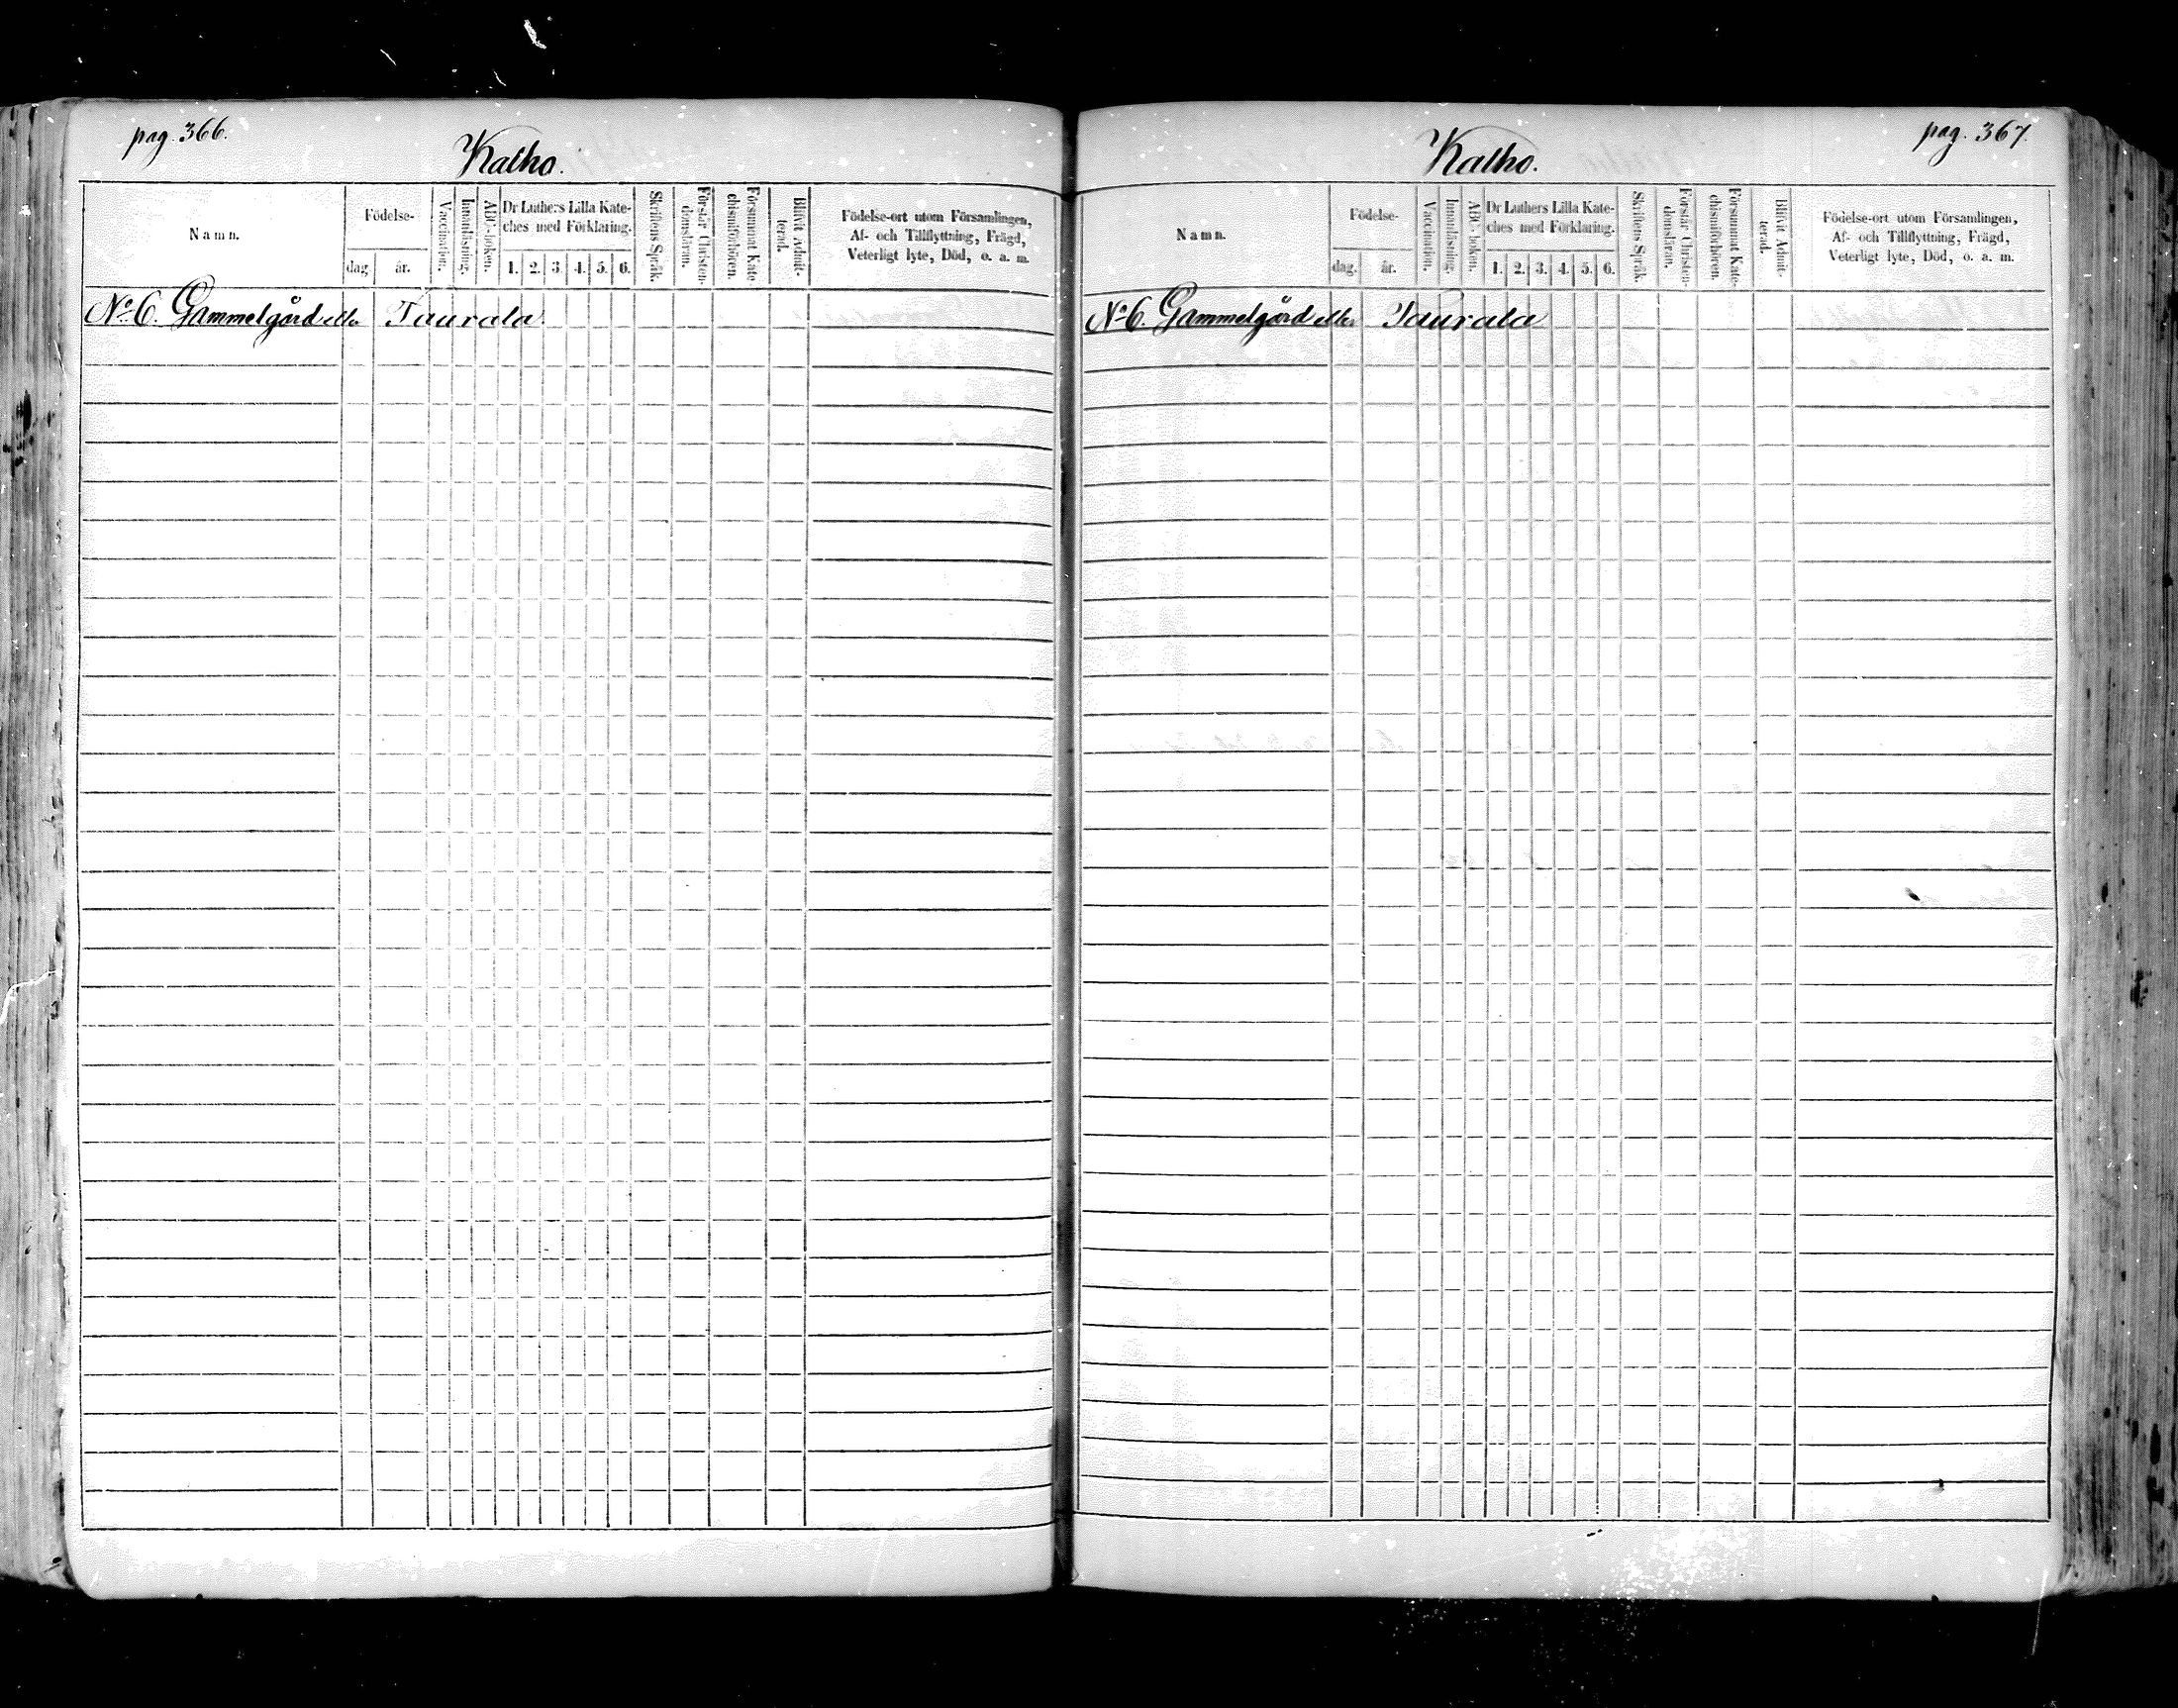 pag. 366.
Kalho.
Namn.
Födelse-
dag.
år.
Vaccination.
Innanläsning.
ABC-boken.
Dr Luthers Lilla Kate-
ches med Förklaring.
1. 2. 3. 4. 5. 6.
Skriftens Språk.
Förstår Christen-
domsläran.
Försummat Kate-
chismiförhören.
Blifvit Admit-
terad.
Födelse-ort utom Församlingen,
Af- och Tillflyttning, Frägd,
Veterligt lyte, Död, o. a. m.
No 6. Gammelgård eller Taurala.
pag. 367.
Kalho.
Namn.
Födelse-
dag.
år.
Vaccination.
Innanläsning.
ABC-boken.
Dr Luthers Lilla Kate-
ches med Förklaring.
1. 2. 3. 4. 5. 6.
Skriftens Språk.
Förstår Christen-
domsläran.
Försummat Kate-
chismiförhören.
Blifvit Admit-
terad.
Födelse-ort utom Församlingen,
Af- och Tillflyttning, Frägd,
Veterligt lyte, Död, o. a. m.
No 6. Gammelgård eller Taurala